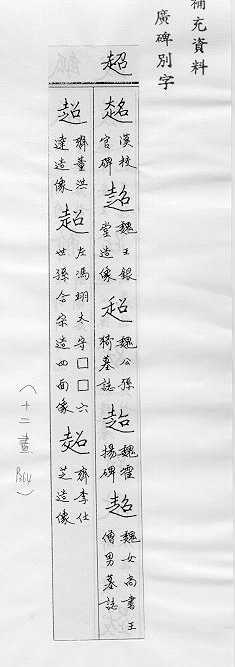 補充資料
廣碑別字
超
漢校
官碑
魏王銀
堂造像
魏公孫
猗墓誌
魏霍
揚碑
魏女尚書王
僧男墓誌
齊董洪
達造像
左馮翊太守□□六
世孫合宗造四面像
齊李仕
芝造像
(十二畫 P.314)